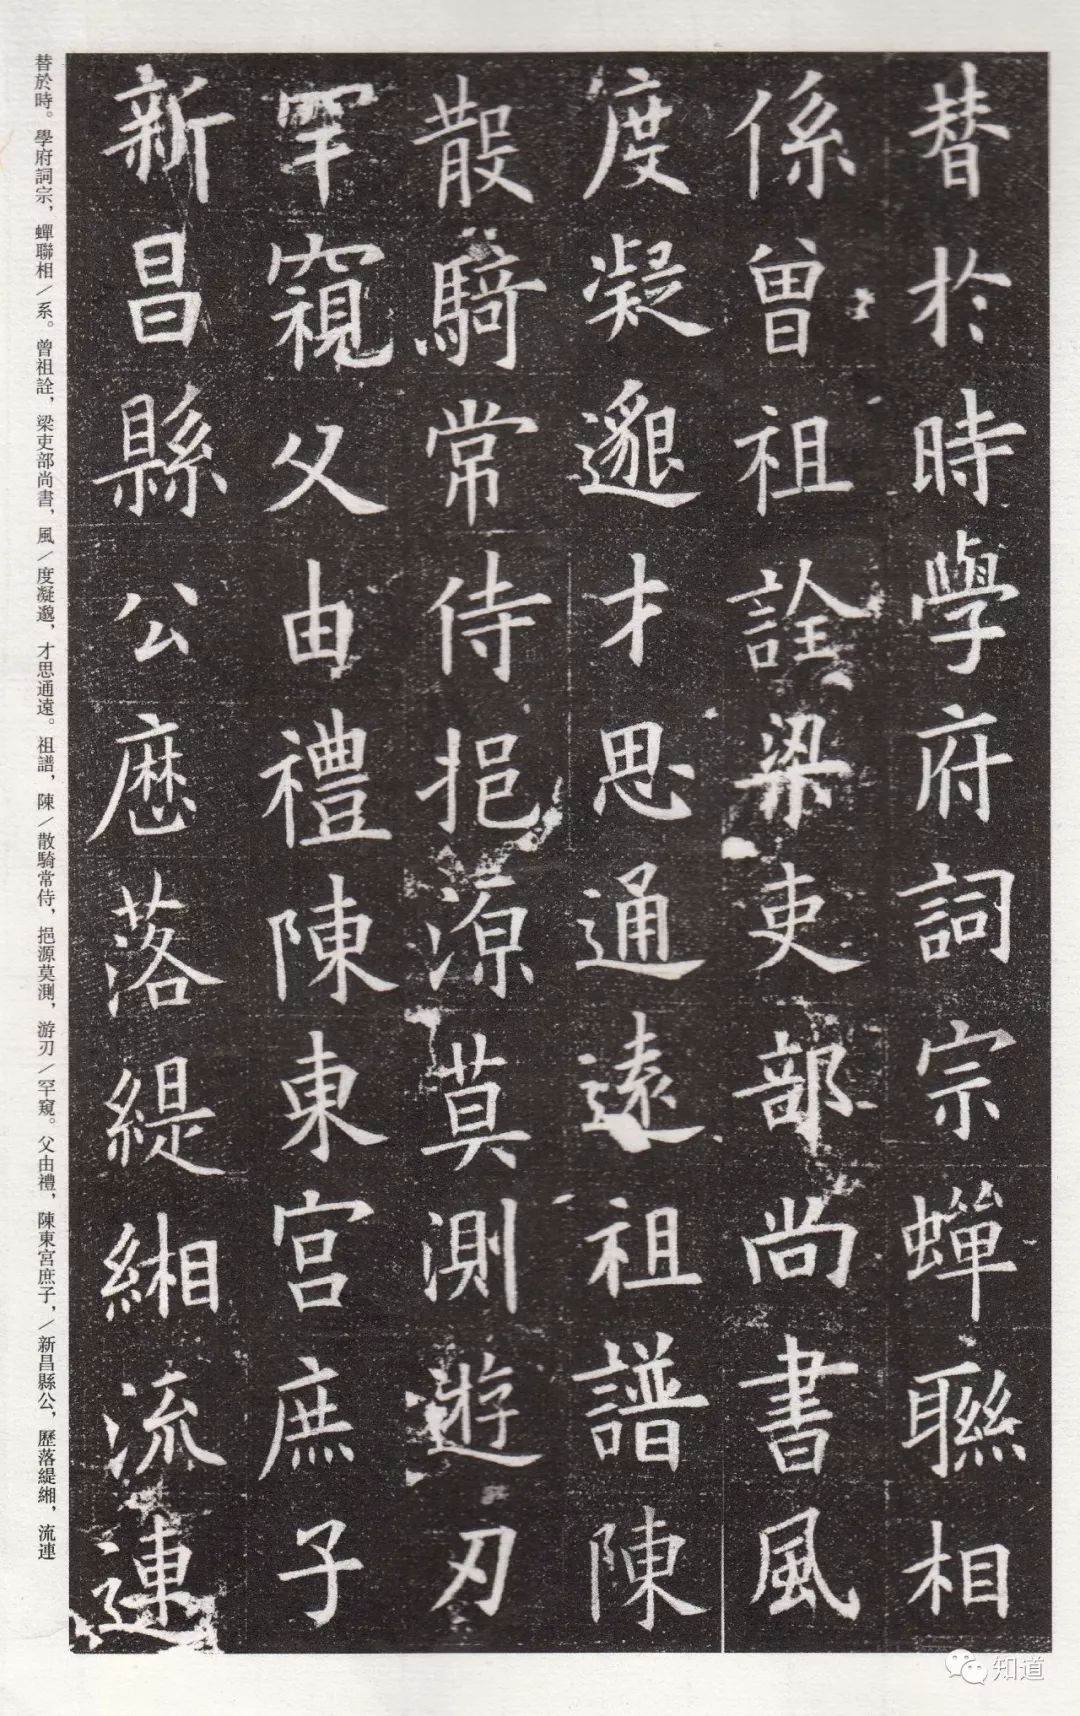 替於時學府詞宗蟬聯相
係曾祖詮梁吏部尚書風
度凝邈才思通遠祖譜陳
散騎常侍挹源莫測遊刃
罕窺父由禮陳東宮庶子
新昌縣公歷落緹緗流連
替於時。學府詞宗，蟬聯相／系。曾祖詮，梁吏部尚書，風／度凝邈，才思通遠。祖譜，陳／散騎常侍，挹源莫測，游刃／罕窺。父由禮，陳東宮庶子，／新昌縣公，歷落緹緗，流連
知道